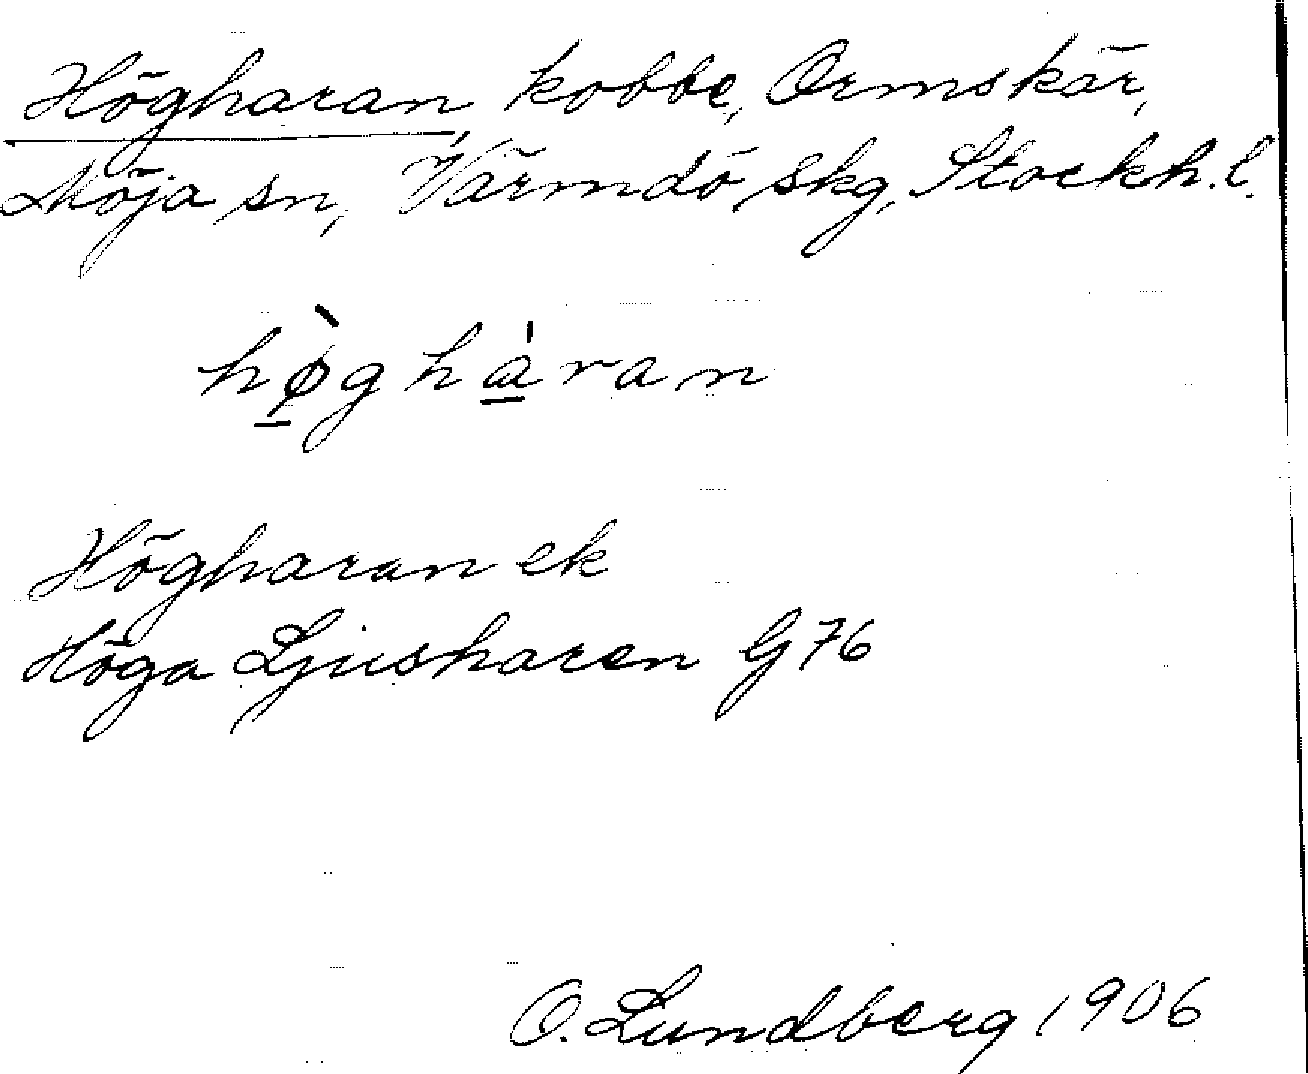 Högharan, kobbe, Ormskär,
Möja sn, Värmdö skg, Stockh.l.
hø̀ghàran
Högharan ek
Höga Ljusharen G76
O. Lundberg 1906